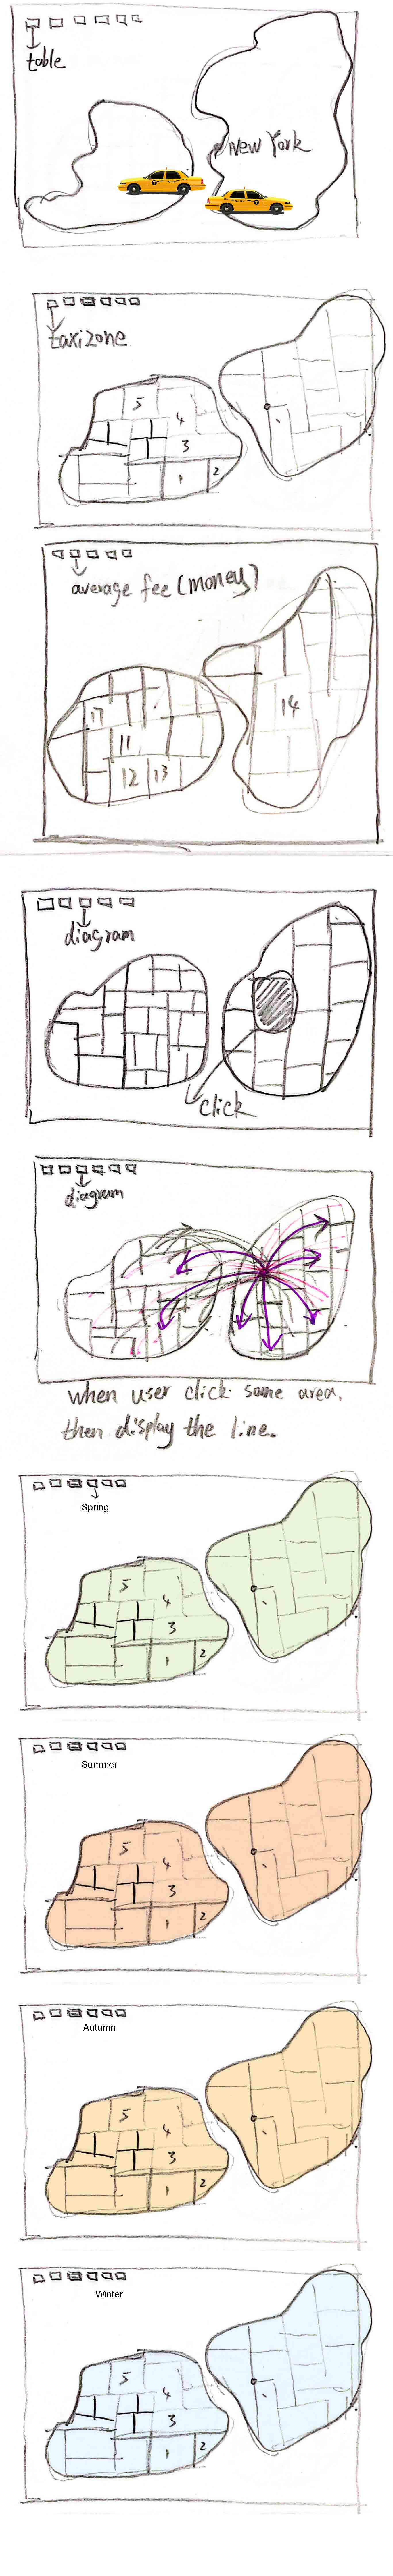 table
New York
taxizone
5
4
3
1
2
average fee (money)
17
14
11
12
13
diagram
click
diagram
when user click same area,
then display the line.
Spring
5
4
3
1
2
Summer
5
4
3
1
2
Autumn
5
4
3
1
2
Winter
5
4
3
1
2